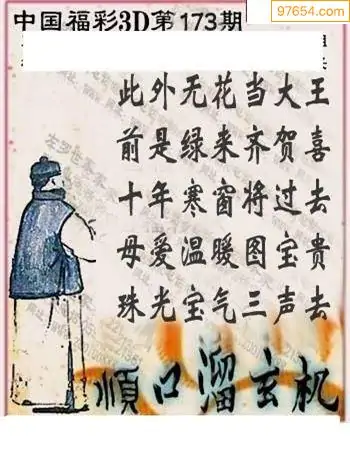 97654.com
中国福彩3D第173期
此外无花当大王
前是绿来齐贺喜
十年寒窗将过去
母爱温暖图宝贵
珠光宝气三声去
順口溜玄机